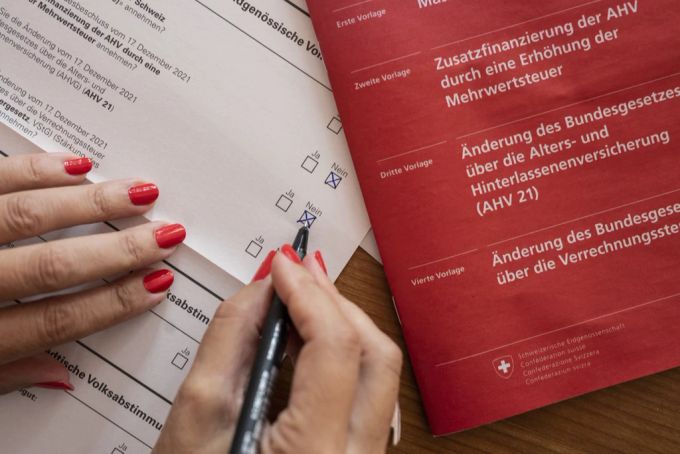 Schweiz
annehmen?
genössische Vol
beschluss vom 17. Dezember 2021
Finanzierung der AHV durch eine
Mehrwertsteuer annehmen?
Sie die Änderung vom 17. Dezember 2021
esgesetzes über die Alters- und
enenversicherung (AHVG) (AHV 21)
nderung vom 17. Dezember 2021
zes über die Verrechnungssteuer
ergesetz, VStG) (Stärkung
annehmen?
Ja
Nein
Ja
Nein
Ja
Volksabstim
ntische Volksabstimmu
gut:
Ja
Ja
Erste Vorlage
Zweite Vorlage
Zusatzfinanzierung der AHV
durch eine Erhöhung der
Mehrwertsteuer
Dritte Vorlage
Änderung des Bundesgesetzes
über die Alters- und
Hinterlassenenversicherung
(AHV 21)
Vierte Vorlage
Änderung des Bundesgese
über die Verrechnungsste
Schweizerische Eidgenossenschaft
Confédération suisse
Confederazione Svizzera
Confederaziun svizra